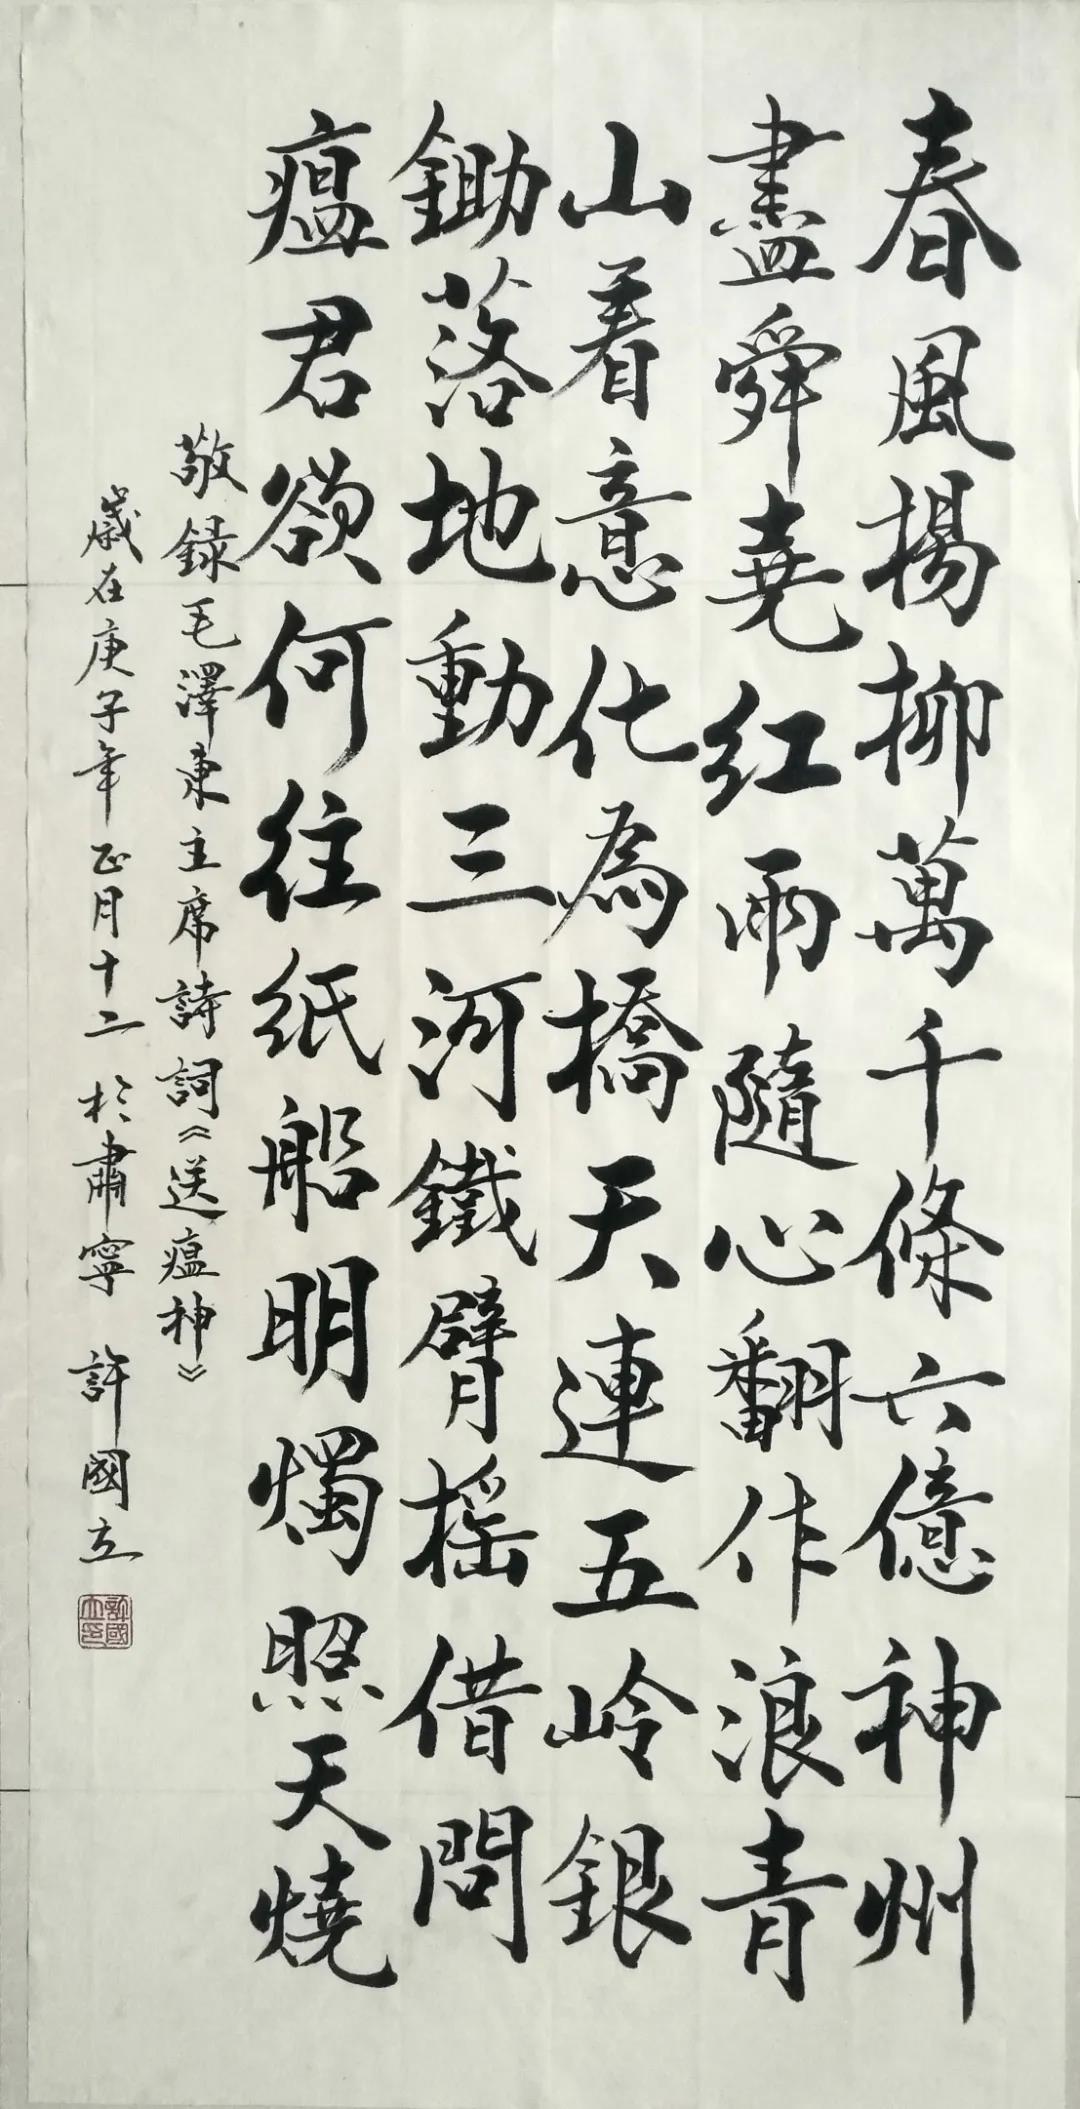 春風楊柳萬千條六億神州
盡舜堯紅雨隨心翻作浪青
山着意化為橋天連五岭銀
鋤落地動三河鐵臂摇借問
瘟君欲何往紙船明燭照天燒
敬録毛澤東主席詩詞《送瘟神》
歲在庚子年正月十二於肅寧許國立
許國立印